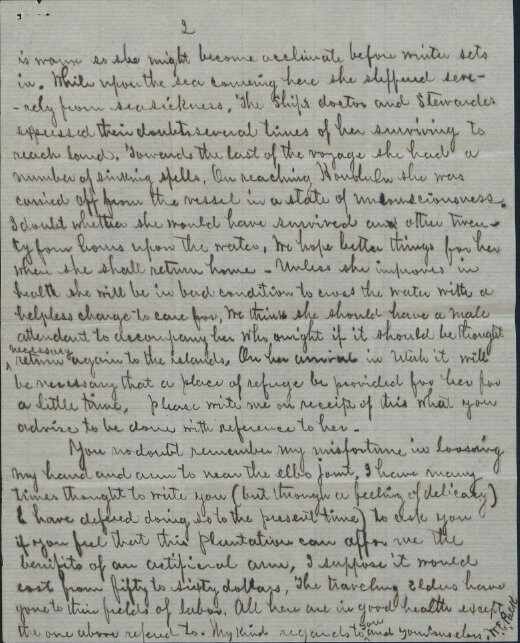 2
is warm so she might become acclimate before winter sets
in. While upon the sea coming here she suffered seve-
-rely from seasickness, The Ships doctor and Stewardes
expessed their doubts several times of her surviving to
reach land. Towards the last of the voyage she had a
number of sinking spells, On reaching Honolulu she was
carried off from the vessel in a state of unconsciousness.
I doubt whether she would have survived an other twen-
ty four hours upon the water, We hope better things for her
when she shall return home - Unless she improves in
health she will be in bad condition to cross the water with a
helpless charge to care for, We think she should have a male
attendant to accompany her who might if it should be thought
necessary
return again to the islands. On her arrival in Utah it will
be necessary that a place of refuge be provided for her for
a little time, Please write me on receipt of this what you
advise to be done with reference to her -
You no doubt remember my misfortune in loosing
my hand and arm to near the elbo joint, I have many
times thought to write you (but through a feeling of delicacy)
I have defered doing so to the present time) to ask you
if you feel that this plantation can affor me the
benifits of an artificial arm, I suppose it would
cost from fifty to sixty dollars, The traveling Elders have
gone to their fields of labor. All here are in good health except
the one above referd to. My kind regards to your and counselors.